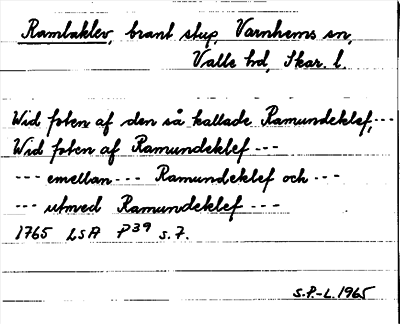 Ramlaklev, brant stup, Varnhems sn,
Valle hd, Skar. l.
Wid foten af den så kallade Ramundeklef, ---
Wid foten af Ramundeklef ---
--- emellan --- Ramundeklef och ---
--- utmed Ramundeklef ---
1765 LSA P39 s. 7.
S.P.-L. 1965